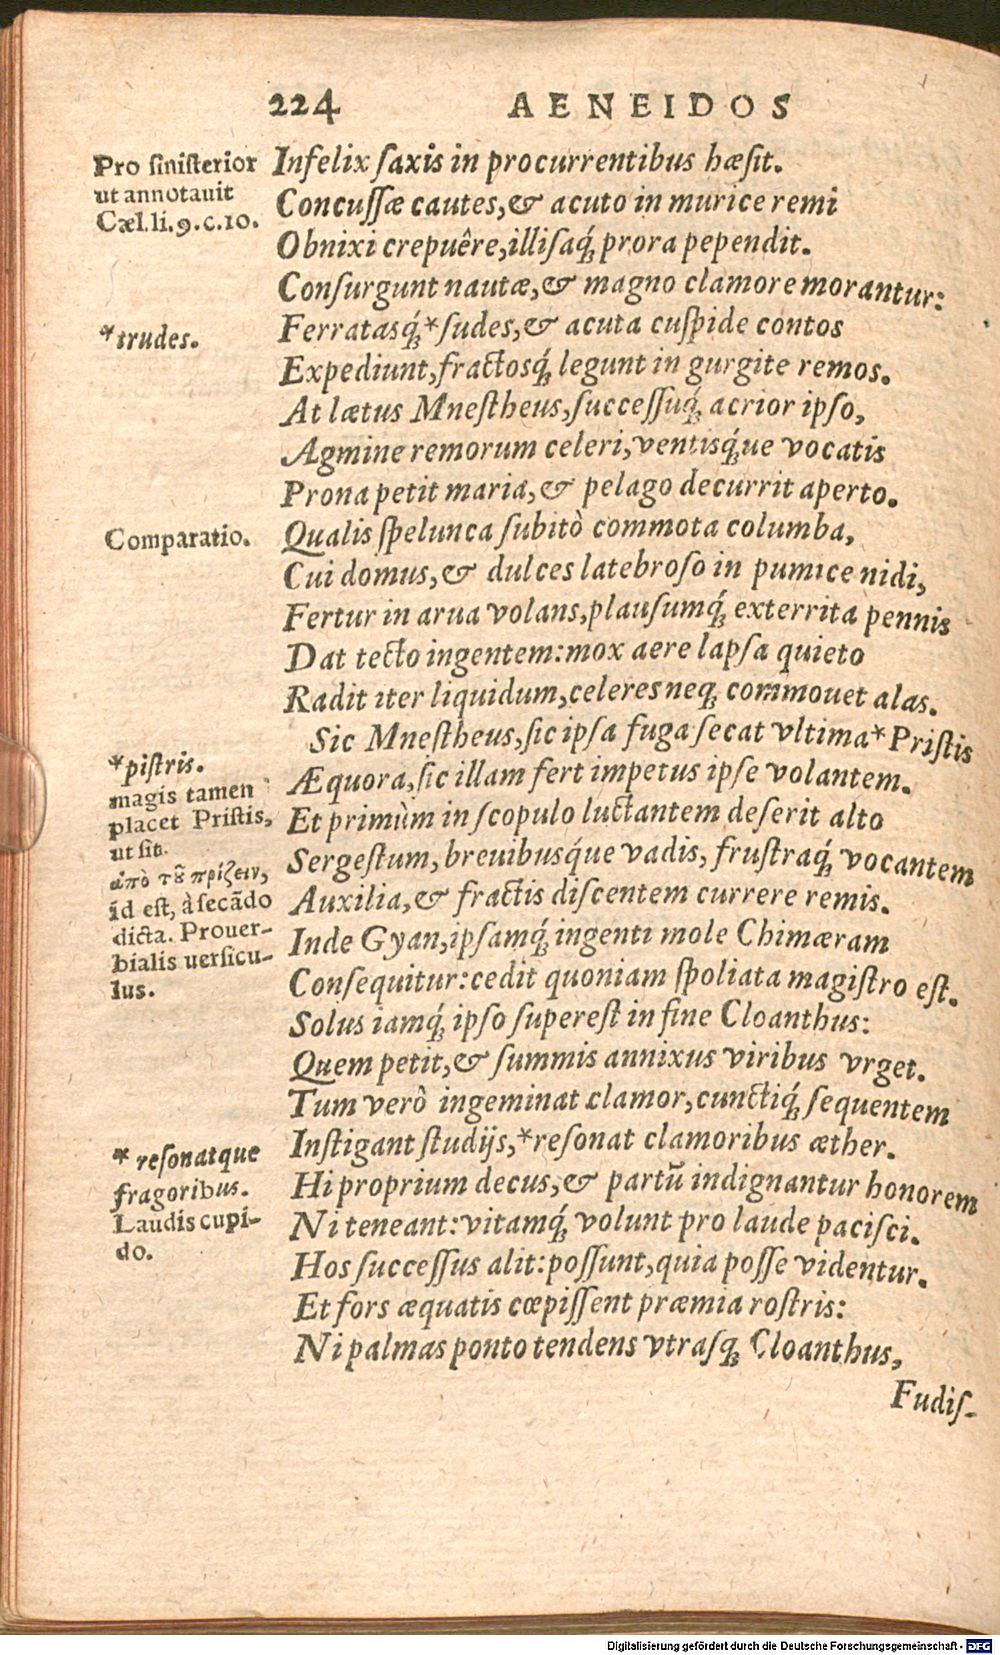 224 AENEIDOS
Pro sinisterior
ut annotauit
Cæl.li.9.c.10.
Infelix ſaxis in procurrentibus hæſit.
Concuſſæ cautes,& acuto in murice remi
Obnixi crepuêre,illiſaq́; prora pependit.
Conſurgunt nautæ,& magno clamore morantur:
*trudes.
Ferratasq́;*ſudes,& acuta cuſpide contos
Expediunt,fractosq́; legunt in gurgite remos.
At lætus Mneſtheus,ſucceſſuq́; acrior ipſo,
Agmine remorum celeri,ventisq́;ue vocatis
Prona petit maria,& pelago decurrit aperto.
Comparatio.
Qualis ſpelunca ſubitò commota columba,
Cui domus,& dulces latebroſo in pumice nidi,
Fertur in arua volans,plauſumq́; exterrita pennis
Dat tecto ingentem:mox aere lapſa quieto
Radit iter liquidum,celeres neq; commouet alas.
Sic Mneſtheus,ſic ipſa fuga ſecat vltima*Priſtis
*piſtris.
magis tamen
placet Priſtis,
ut ſit.
ἀπὸ τȣ͂ πρίζειν,
id eſt, à ſecãdo
dicta. Prouer-
bialis uerſicu-
lus.
Æquora,ſic illam fert impetus ipſe volantem.
Et primùm in ſcopulo luctantem deſerit alto
Sergeſtum,breuibusq́ue vadis, fruſtraq́; vocantem
Auxilia,& fractis diſcentem currere remis.
Inde Gyan,ipſamq́; ingenti mole Chimæram
Conſequitur:cedit quoniam ſpoliata magiſtro eſt.
Solus iamq́; ipſo ſupereſt in fine Cloanthus:
Quem petit,& ſummis annixus viribus vrget.
Tum verò ingeminat clamor,cunctiq́; ſequentem
* reſonatque
fragoribus.
Laudis cupi-
do.
Inſtigant ſtudijs,*reſonat clamoribus æther.
Hi proprium decus,& partũ indignantur honorem
Ni teneant:vitamq́; volunt pro laude paciſci.
Hos ſucceſſus alit:poſſunt,quia poſſe videntur.
Et fors æquatis cœpiſſent præmia roſtris:
Ni palmas ponto tendens vtraſq; Cloanthus,
Fudiſ-
Digitalisierung gefördert durch die Deutsche Forschungsgemeinschaft - DFG